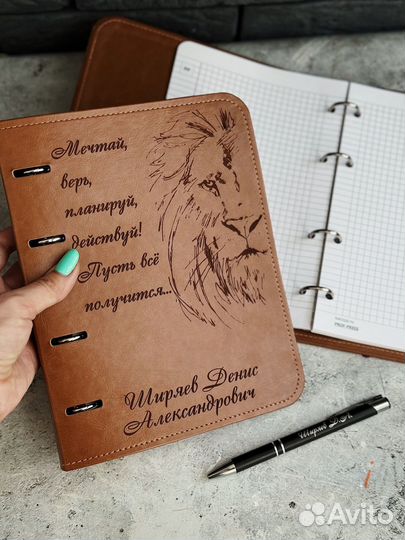 Мечтай,
верь,
планируй,
действуй!
Пусть всё
получится...
Ширяев Денис
Александрович
Ширяев Д.А.
Avito